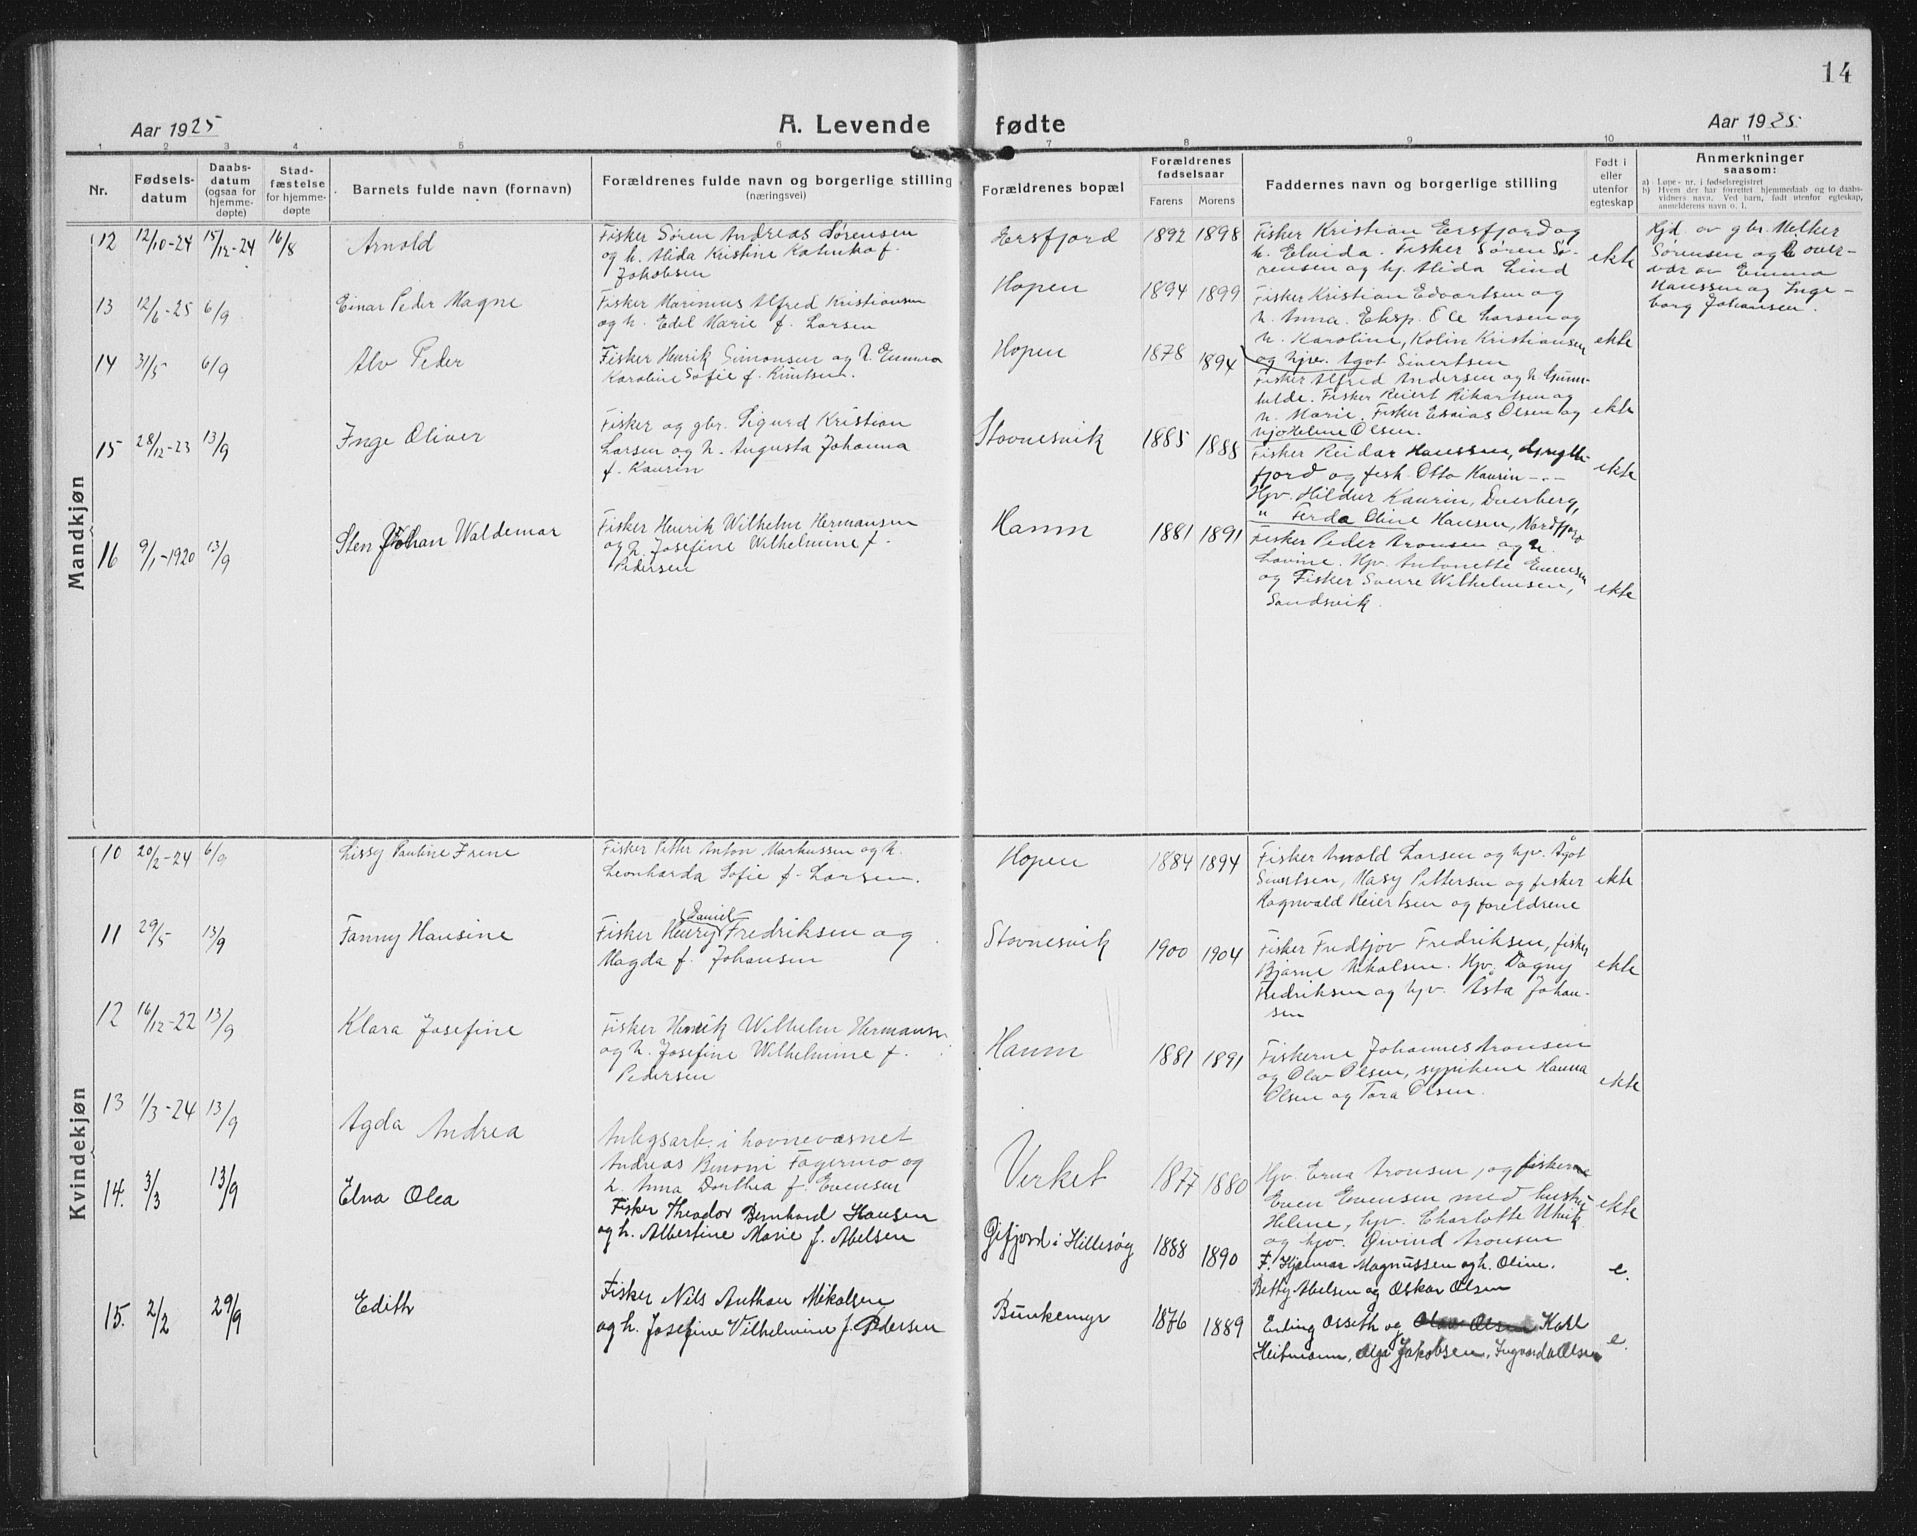 14
Aar 1925
A. Levende fødte
Aar 1925
1 2 3 4 5 6 7 8 9 10 11
Nr.
Fødsels-
datum
Daabs-
datum
(ogsaa for
hjemme-
døpte)
Stad-
fæstelse
for hjemme-
døpte
Barnets fulde navn (fornavn)
Forældrenes fulde navn og borgerlige stilling
(næringsvei)
Forældrenes bopæl
Forældrenes
fødselsaar
Farens
Morens
Faddernes navn og borgerlige stilling
Født i
eller
utenfor
egteskap
Anmerkninger
saasom:
a) Løpe-nr. i fødselsregistret
b) Hvem der har forrettet hjemmedaab og to daabs-
vidners navn. Ved barn, født utenfor egteskap,
anmelderens navn o. l.
Mandkjøn
12 12/10-24 15/12-24 16/8 Arnold
Fisker Søren Andreas Sørensen
og h. Alida Kristine Katinka f.
Jakobsen
Ersfjord 1892 1898
Fisker Kristian Ersfjord og
h. Elvida. Fisker Søren Sø-
rensen og hj. Alida Lind
ekte
Hjd. av gbr. Melker
Sørensen og over-
vær av Emma
Hanssen og Inge-
borg Johansen.
13 12/6-25 6/9 Einar Peder Magne
Fisker Marinius Alfred Kristiansen
og h. Edel Marie f. Larsen
Hopen 1894 1899
Fisker Kristian Edvartsen og
h. Anna. Eksp. Ole Larsen og
h. Karoline, Kolin Kristiansen
og hjv. Agot Sivertsen
ekte
14 31/5 6/9 Alv Peder
Fisker Henrik Simonsen og h. Emma
Karoline Sofie f. Knutsen.
Hopen 1878 1894
Fisker Alfred Andersen og h. Gunn-
hilde. Fisker Reiert Rikartsen og
h. Marie. Fisker Esaias Olsen og
hjv Helene Olsen.
ekte
15 28/12-23 13/9 Inge Oliver
Fisker og gbr. Sigurd Kristian
Larsen og h. Augusta Johanna
f. Kaurin
Stovnesvik 1885 1888
Fisker Reidar Hanssen, Grylle-
fjord og fisk. Otto Kaurin -.-
Hjv. Hildur Kaurin, Duerberg,
" Ferda Oline Hansen, Nordfjord
ekte
16 9/1-1920 13/9 Sten Johan Waldemar
Fisker Henrik Wilhelm Hermansen
og h. Josefine Wilhelmine f.
Pedersen
Hamn 1881 1891
Fisker Peder Aronsen og h.
Lovine. Hjv. Antonette Evensen
og Fisker Sverre Wilhelmsen,
Sandsvik.
ekte
Kvindekjøn
10 20/2-24 6/9 Lissy Pauline Irene
Fisker Petter Anton Markussen og h.
Leonharda Sofie f. Larsen.
Hopen 1884 1894
Fisker Arvold Larsen og hjv. Ågot
Sivertsen, Masy Pettersen og fisker
Ragnvald Reiertsen og foreldrene
ekte
11 29/5 13/9 Fanny Hansine
Daniel
Fisker Henry Fredriksen og
Magda f. Johansen
Stovnesvik 1900 1904
Fisker Fridtjov Fredriksen, fisker
Bjarne Nikolsen. Hjv. Dagny
Fredriksen og hjv. Åsta Johan-
sen
ekte
12 16/12-22 13/9 Klara Josefine
Fisker Henrik Wilhelm Hermansn
og h. Josefine Wilhelmine f.
Pedersen
Hamn 1881 1891
Fiskerne Johannes Aronsen
og Olav Olsen, sypikene Hanna
Olsen og Tora Olsen.
ekte
13 1/3-24 13/9 Agda Andrea
Anlegsarb. i havnevæsnet
Andreas Benoni Fagermo og
h. Anna Dorthea f. Evensen
Verket 1877 1880
Hjv. Erna Aronsen, og fiskerne
Even Evensen med hustru
Helene, hjv. Charlotte Utvik
og hjv. Øivind Aronsen
ekte
14. 3/3 13/9 Elna Olea
Fisker Theodor Bernhard Hansen
og h. Albertine Marie f. Abelsen
Gifjord i Hillesøy 1888 1890
F. Hjalmar Magnussen og h. Oline.
Betty Abelsen og Oskar Olsen
e.
15. 2/2 29/9 Edith
Fisker Nils Anthon Mikalsen
og h. Josefine Vilhelmine f. Pedersen
Bunkemyr 1876 1889
Erling Osseth og Olav Olsen Karl
Heitmann, Olga Jakobsen, Ingvarda Olsen
e.